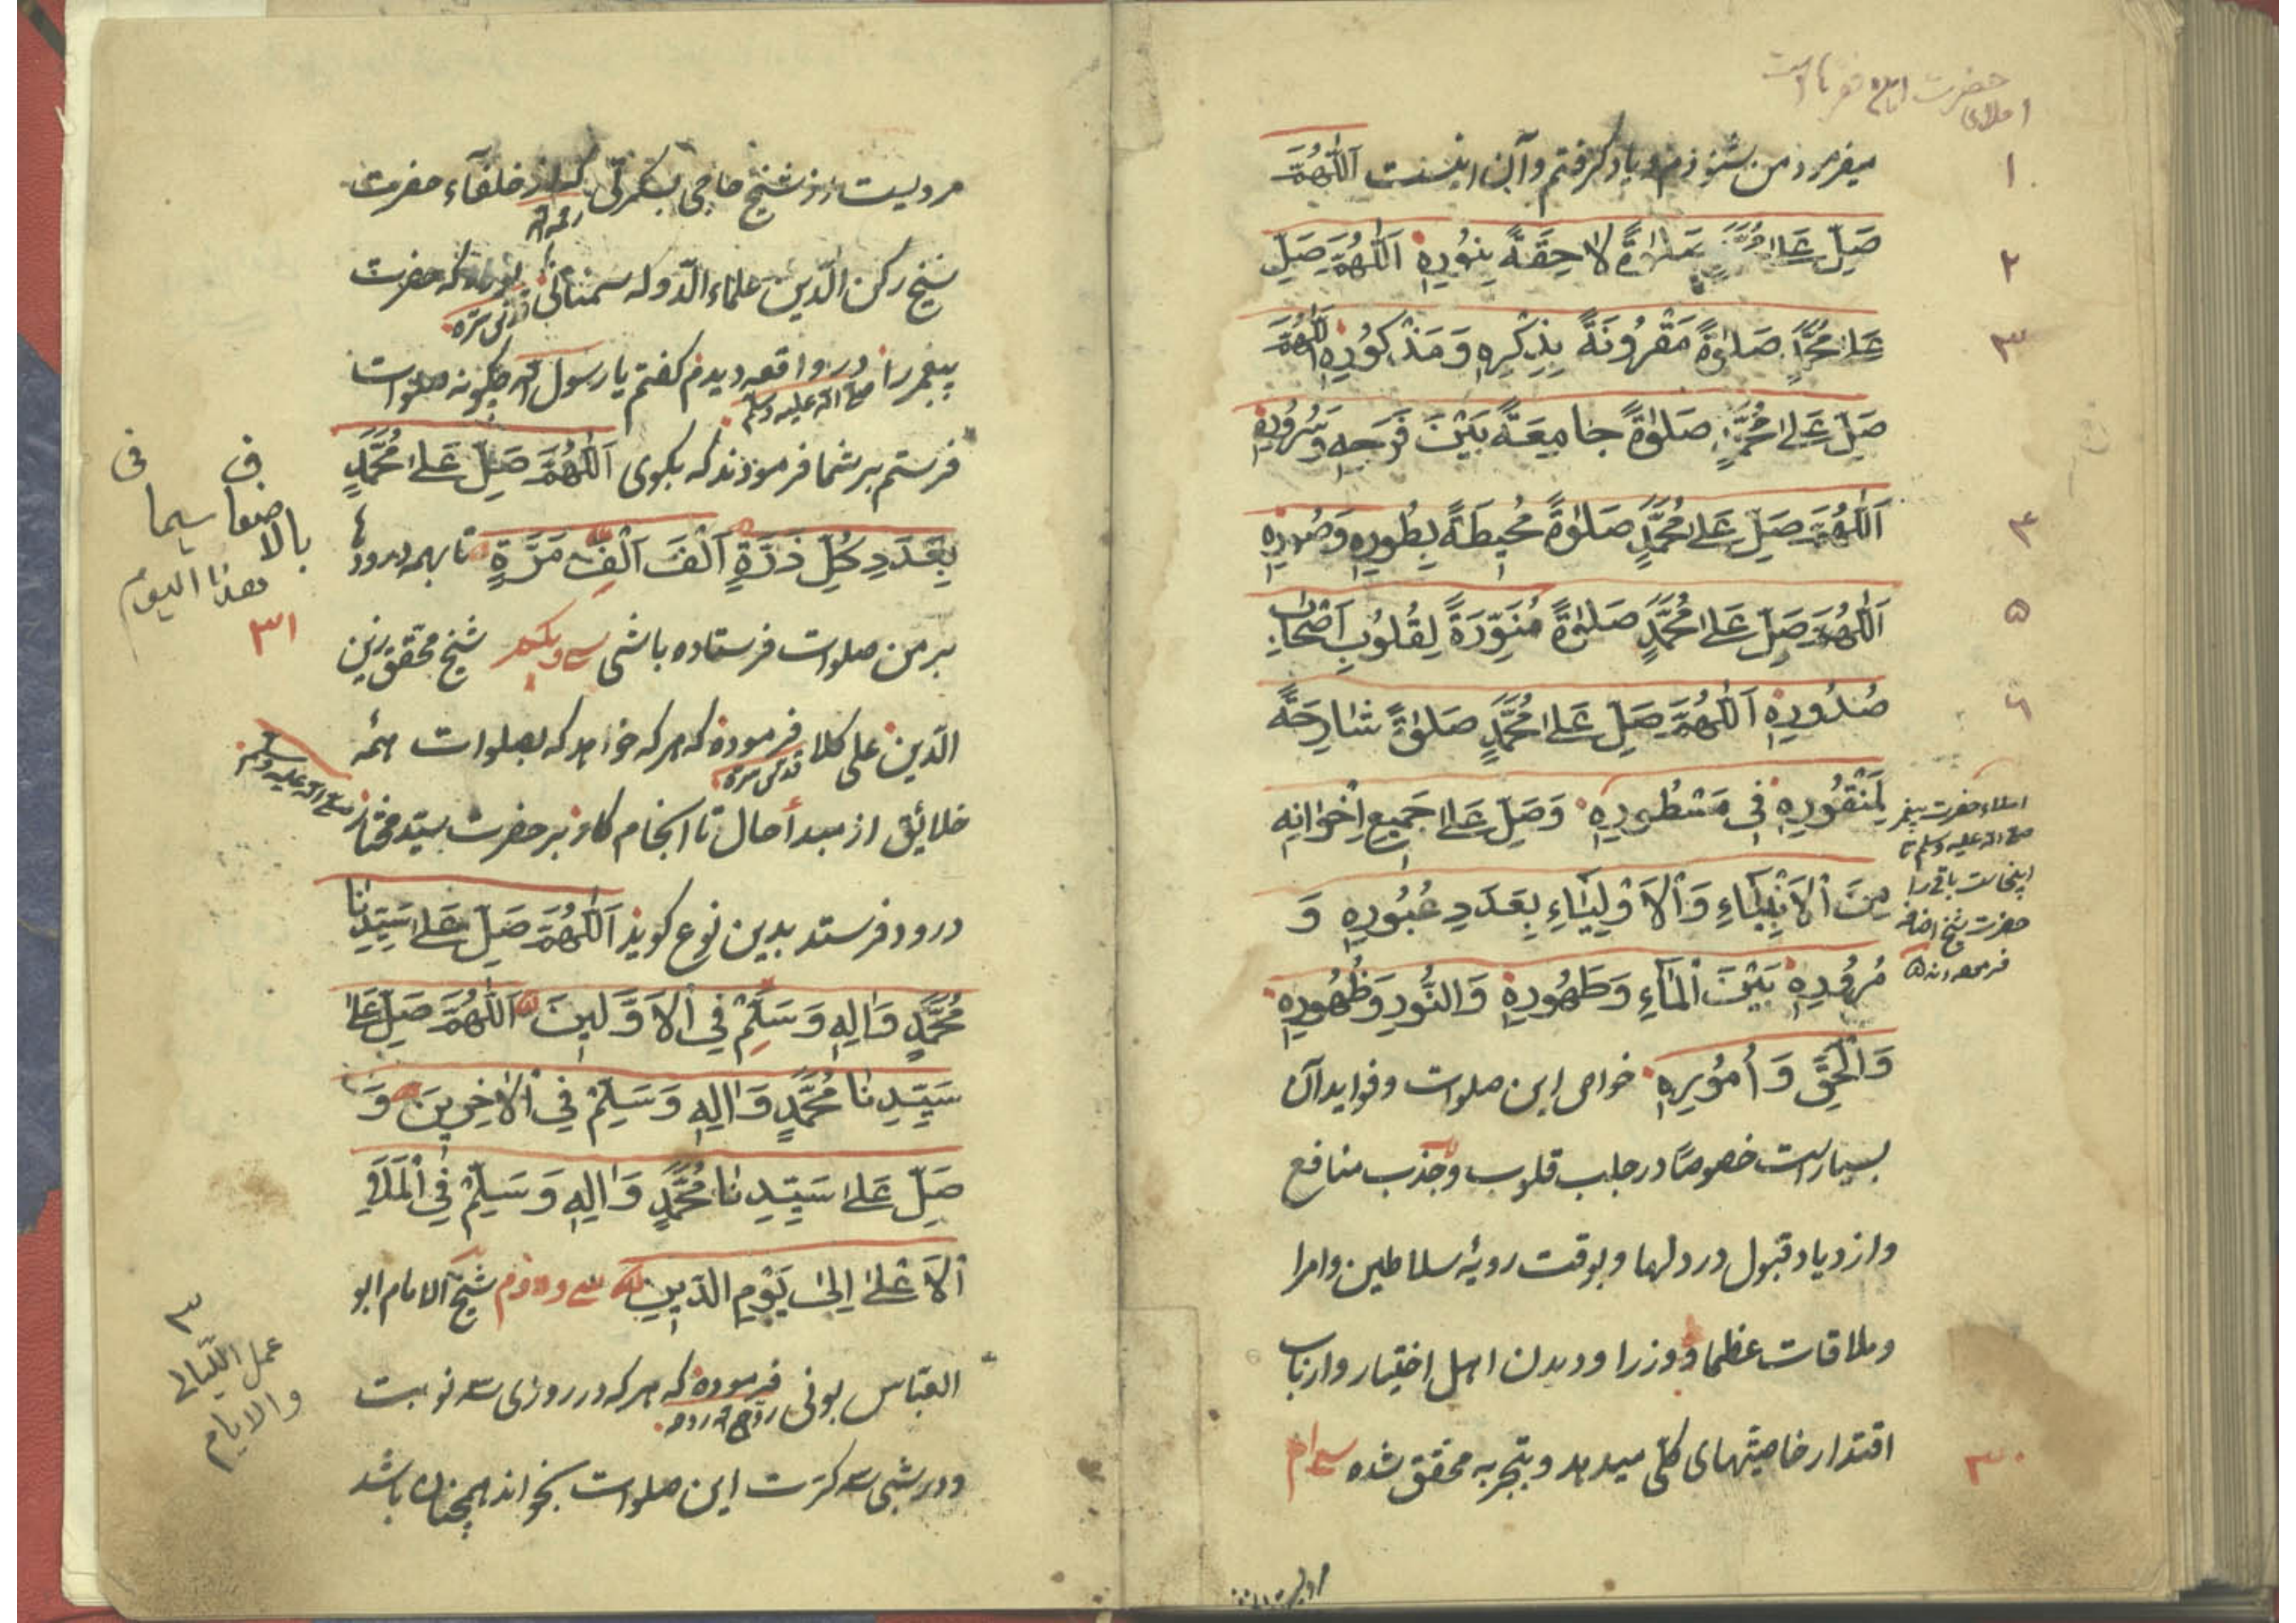 املای حضرت
میفرمودند من شنوذم و یاد گرفتم و آن اینست اَللّٰهُمَّ
۱
صَلِّ عَلٰی مُحَمَّدٍ صَلٰوةً لَاحِقَةً بِنُورِهِ اَللّٰهُمَّ صَلِّ
۲
عَلٰی مُحَمَّدٍ صَلٰوةً مَقْرُونَةً بِذِكْرِهِ وَمَذْكُورِهِ اَللّٰهُمَّ
۳
صَلِّ عَلٰی مُحَمَّدٍ صَلٰوةً جَامِعَةً بَيْنَ فَرَحِهِ وَسُرُورِهِ
اَللّٰهُمَّ صَلِّ عَلٰی مُحَمَّدٍ صَلٰوةً مُحِيطَةً بِطُورِهِ وَصُورِهِ
۴
اَللّٰهُمَّ صَلِّ عَلٰی مُحَمَّدٍ صَلٰوةً مُنَوِّرَةً لِقُلُوبِ اَصْحَابِ
۵
صُدُورِهِ اَللّٰهُمَّ صَلِّ عَلٰی مُحَمَّدٍ صَلٰوةً شَارِحَةً
۶
لِمَنْقُورِهِ فِی مَسْطُورِهِ وَصَلِّ عَلٰی جَمِيعِ اِخْوَانِهِ
مِنَ الْاَنْبِيَاءِ وَالْاَوْلِيَاءِ بِعَدَدِ عُبُورِهِ وَ
مُرُورِهِ بَيْنَ الْمَاءِ وَطَهُورِهِ وَالنُّورِ وَظُهُورِهِ
وَالْحَقِّ وَاُمُورِهِ خواص این صلوات و فواید آن
بسیارست خصوصًا در جلب قلوب و جذب منافع
و ازدیاد قبول در دلها و بوقت رویهٔ سلاطین و امرا
و ملاقات عظما و وزرا و دیدن اهل اختیار و ارباب
اقتدار خاصیتهای کلّی میدهد و بتجربه محقق شده سی‌ام
۳۰
املاء حضرت پیغمبر
صلی الله علیه وسلم تا
اینجاست باقی را
حضرت شیخ اضافه
فرموده‌اند
مرویست از شیخ حاجی که از خلفآء حضرت
رحمه الله
شیخ رکن الدّین علاء الدّوله سمنانی بوده که حضرت
قدس سرّه
پیغمبر را در واقعه دیدم گفتم یا رسول الله چگونه صلوات
صلی الله علیه وسلم
فرستم بر شما فرمودند که بگوی اَللّٰهُمَّ صَلِّ عَلٰی مُحَمَّدٍ
بِعَدَدِ كُلِّ ذَرَّةٍ اَلْفَ اَلْفِ مَرَّةٍ تا بهمه درودها
بر من صلوات فرستاده باشی سی و یکم شیخ محقق زین
الدّین علی کلا فرموده که هر که خواهد که بصلوات همهٔ
قدس سرّه
خلائق از مبدأ حال تا انجام کار بر حضرت سیّد مختار
صلی الله علیه وسلم
درود فرستد بدین نوع گوید اَللّٰهُمَّ صَلِّ عَلٰی سَيِّدِنَا
مُحَمَّدٍ وَاٰلِهِ وَسَلِّمْ فِی الْاَوَّلِينَ اَللّٰهُمَّ صَلِّ عَلٰی
سَيِّدِنَا مُحَمَّدٍ وَاٰلِهِ وَسَلِّمْ فِی الْاٰخِرِينَ وَ
صَلِّ عَلٰی سَيِّدِنَا مُحَمَّدٍ وَاٰلِهِ وَسَلِّمْ فِی الْمَلَاِ
الْاَعْلٰی اِلٰی يَوْمِ الدِّينِ سی و دوم شیخ الامام ابو
العبّاس بونی فرموده که هر که در روزی سه نوبت
روّح الله روحه
و در شبی سه کرّت این صلوات بخواند همچنان باشد
ف فی
بالاضعاف سیما
هذا الیوم
۳۱
۳
عمل اللّیالی
والایام